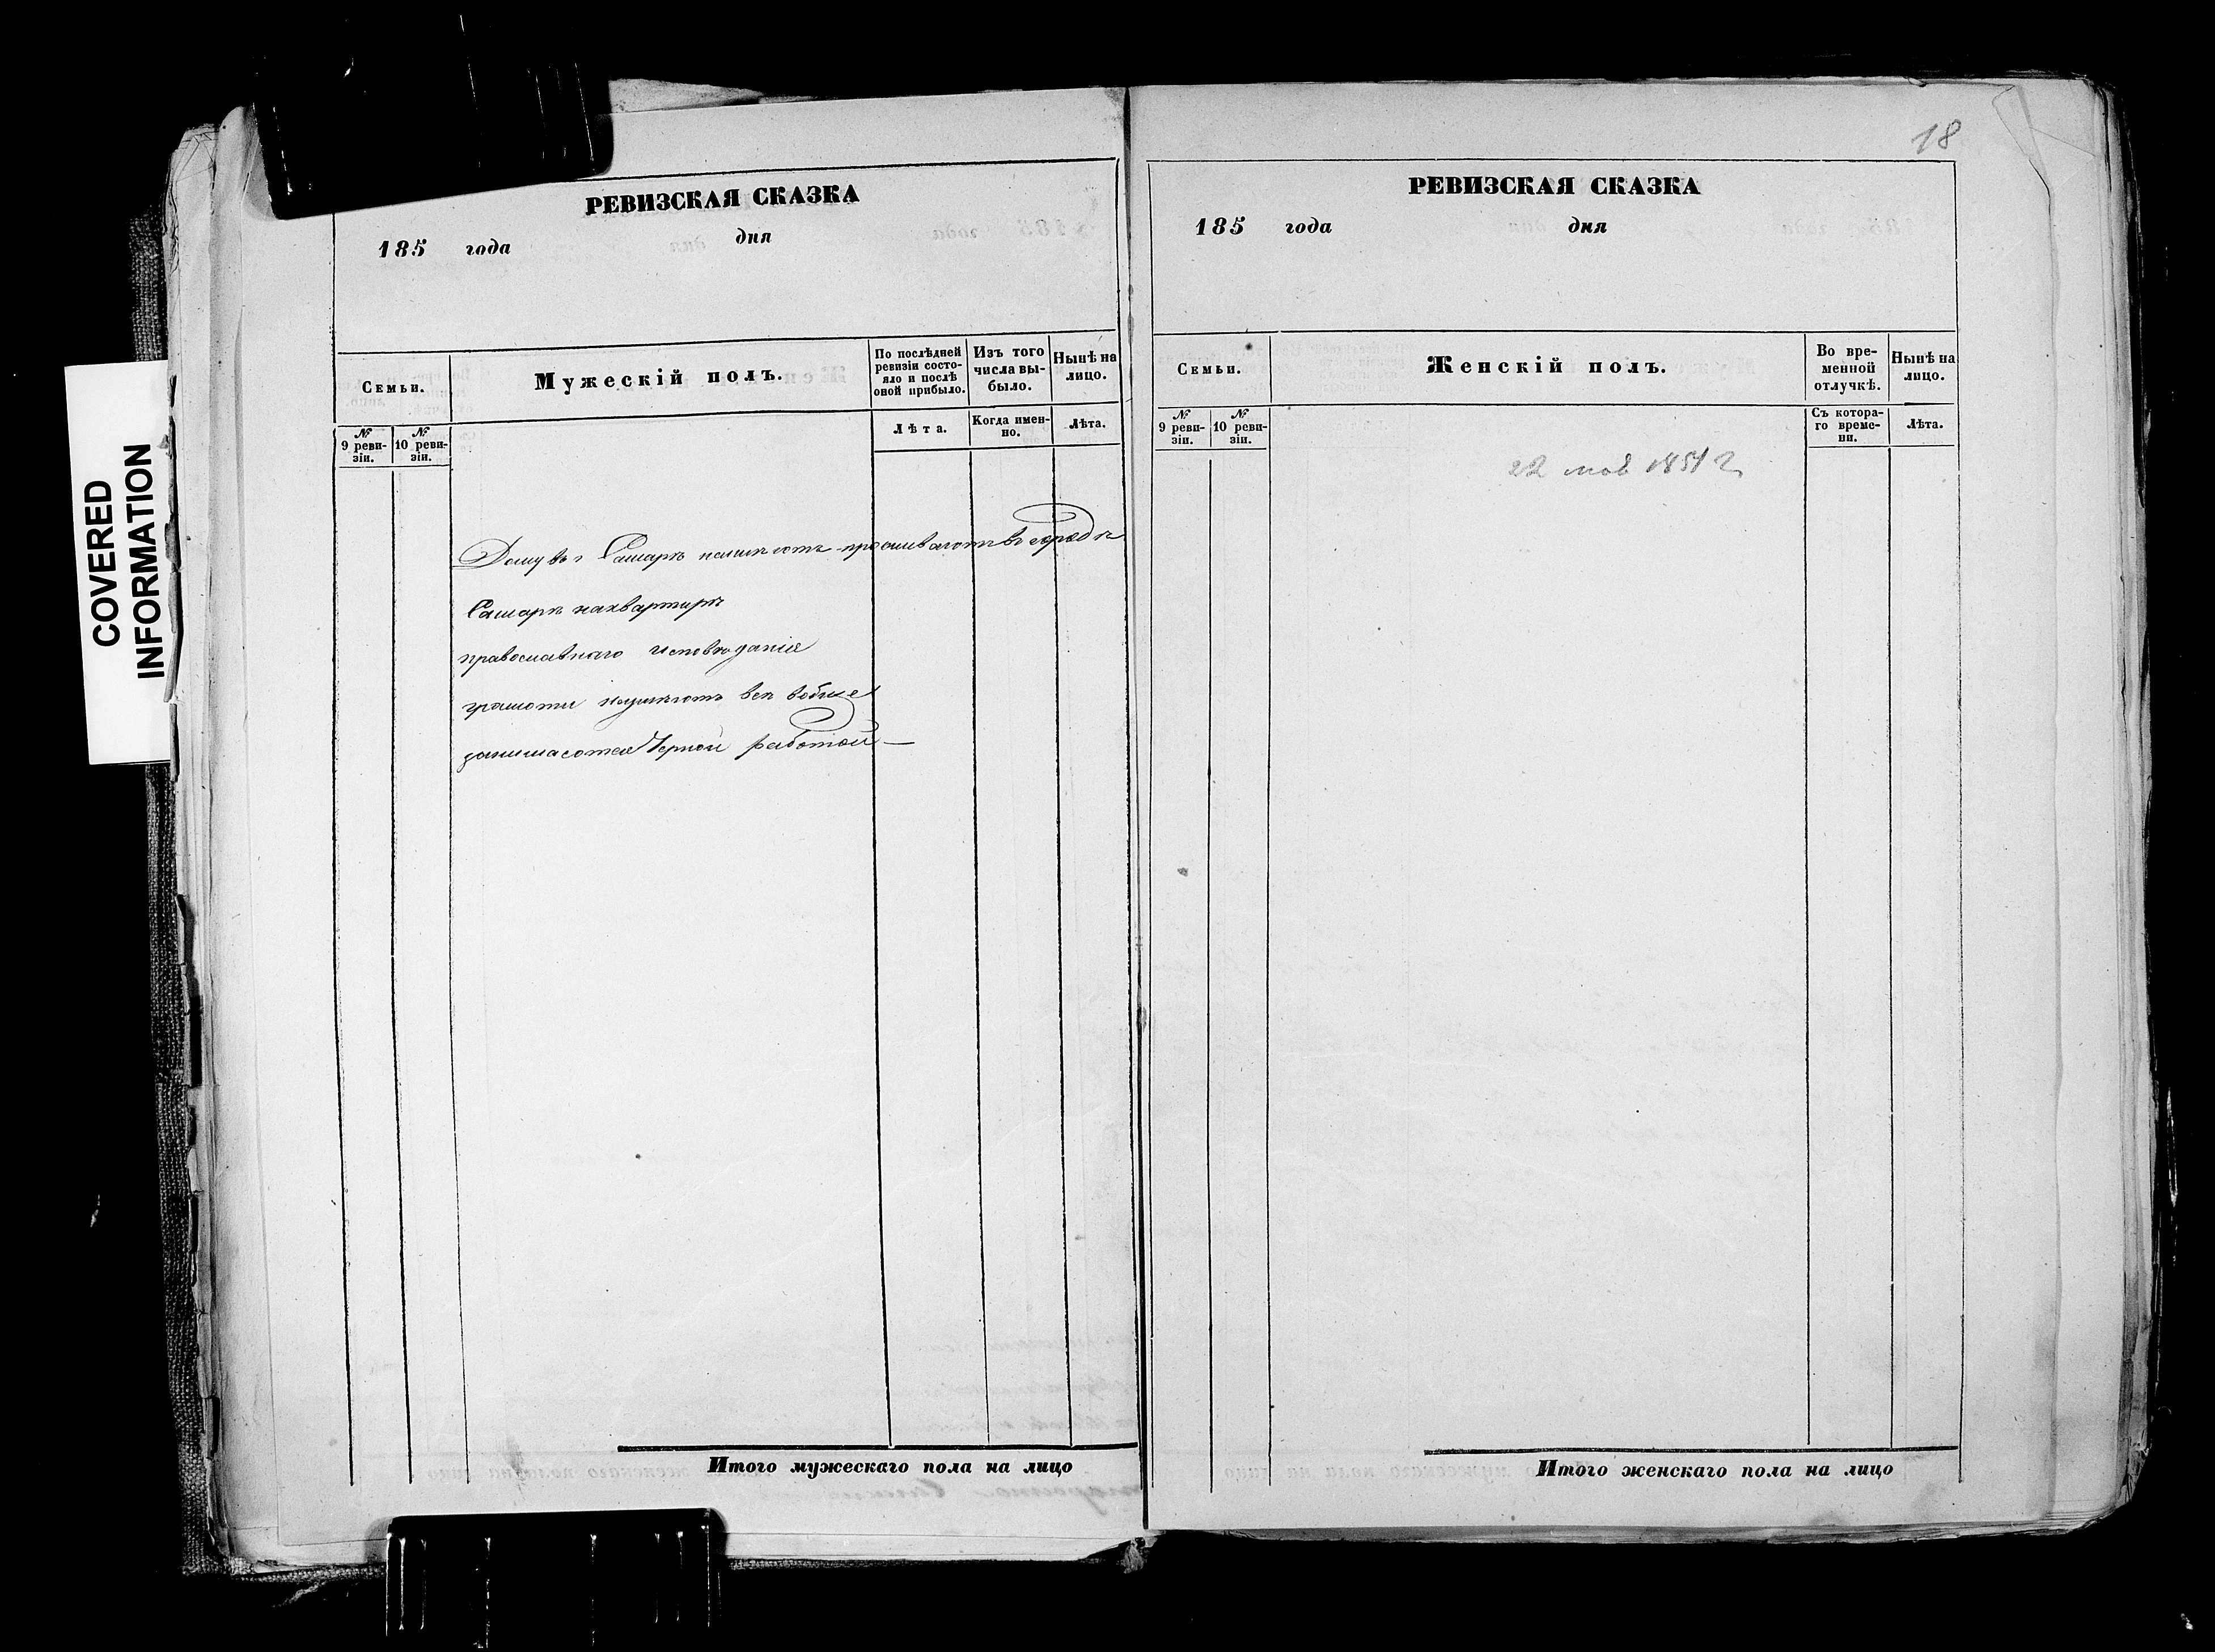 18
РЕВИЗСКАЯ СКАЗКА
185 года дня
Семьи.
Мужескій полъ.
По послѣдней ревизіи состояло и послѣ оной прибыло.
Изъ того числа выбыло.
Нынѣ на лицо.
№ 9 ревизіи.
№ 10 ревизіи.
Лѣта.
Когда именно.
Лѣта.
Дому въ г Самарѣ неимѣютъ проживаютъ въ городѣ
Самарѣ наквартирѣ
православнаго исповѣданія
грамоты неумѣютъ всѣ вобще
занимаются Черной работой
Итого мужескаго пола на лицо
РЕВИЗСКАЯ СКАЗКА
185 года дня
Семьи.
Женскій полъ.
Во временной отлучкѣ.
Нынѣ на лицо.
№ 9 ревизіи.
№ 10 ревизіи.
Съ котораго времени.
Лѣта.
22
Итого женскаго пола на лицо
COVERED
INFORMATION